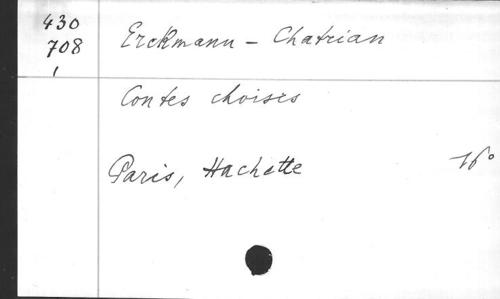 430
708
1
Erckmann - Chatrian
Contes choises
Paris, Hachette 16°